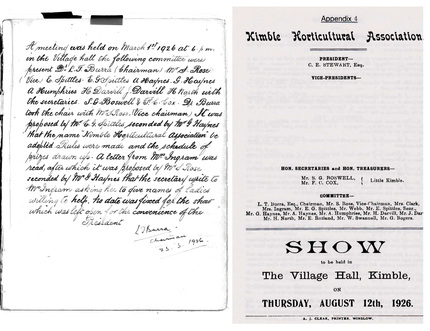 A meeting was held on March 1st 1926 at 6 p.m.
in the Village Hall the following committee were
present Dr L.T. Burra (Chairman) Mr S Rose
Vice E Spittles E G Spittles A Haynes G Haynes
A Humphries H Darvill J Darvill H North with
the secretaries S.G Boswell & P C Cox. Dr Burra
took the chair with Mr S Rose Vice chairman. It was
proposed by Mr E.G Spittles, seconded by Mr G Haynes
that the name Kimble Horticultural Association be
adopted Rules were made and the schedule of
prizes drawn up. A letter from Mrs Ingram was
read, after which it was proposed by Mr S Rose
seconded by Mr G Haynes that the secretary write to
Mrs Ingram asking her to give names of Ladies
willing to help. No date was fixed for the show
which was left open for the convenience of the
President
L Burra
Chairman
23.3.1926.
Appendix 4
Kimble Horticultural Association
PRESIDENT—
C. E. STEWART, Esq.
VICE-PRESIDENTS—
HON. SECRETARIES AND HON. TREASURERS—
Mr. S. G. BOSWELL,
Mr. P. C. COX,
Little Kimble.
COMMITTEE—
L. T. Burra, Esq., Chairman, Mr. S. Rose, Vice-Chairman, Mrs. Clark,
Mrs. Ingram, Mr. E. G. Spittles, Mr. Webb, Mr. E. Spittles, Senr.,
Mr. G. Haynes, Mr. A. Haynes, Mr. A. Humphries, Mr. H. Darvill, Mr. J. Dar
Mr. H. North, Mr. E. Rowland, Mr. W. Swannell, Mr. G. Rogers.
SHOW
to be held in
The Village Hall, Kimble,
ON
THURSDAY, AUGUST 12th, 1926.
A. J. CLEAR, PRINTER, WINSLOW.